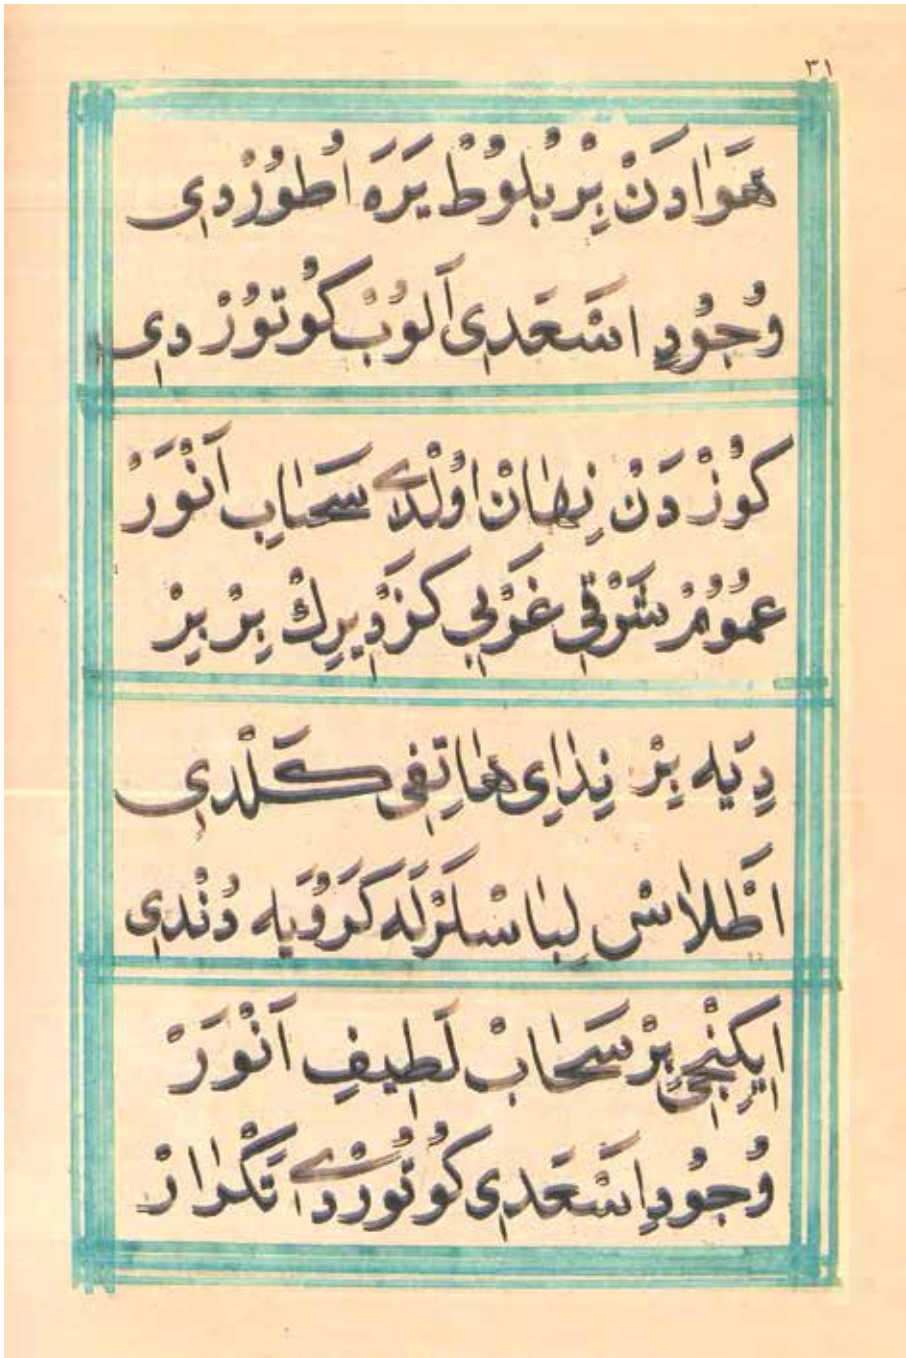 ٣١
هَوٰادَنْ بِرْ بُلُوُطْ يَرَه اُطُوُرْدِى
وُجُوُدِ اسَعَدِى اَلوُبْ كُوتوُرْدِى
كوُزْدَنْ نِهٰانْ اوُلْدِى سَحٰابِ اَنْوَرْ
عمُوُمْ شَرْقِي غَرْبِي كَزْدِيرِكْ بِرْ بِرْ
دِيَه بِرْ نِدٰاىِ هٰاتِفِى كَلْدِى
اَطْلاٰسْ لِبٰاسْلَرْلَه كَرُويَه دُنْدِى
ايكِنْجِى بِرْ سَحٰابْ لَطِيفِ اَنْوَرْ
وُجُوُدِ اسْعَدِى كوُتوُرْدِى تَكْرٰارْ